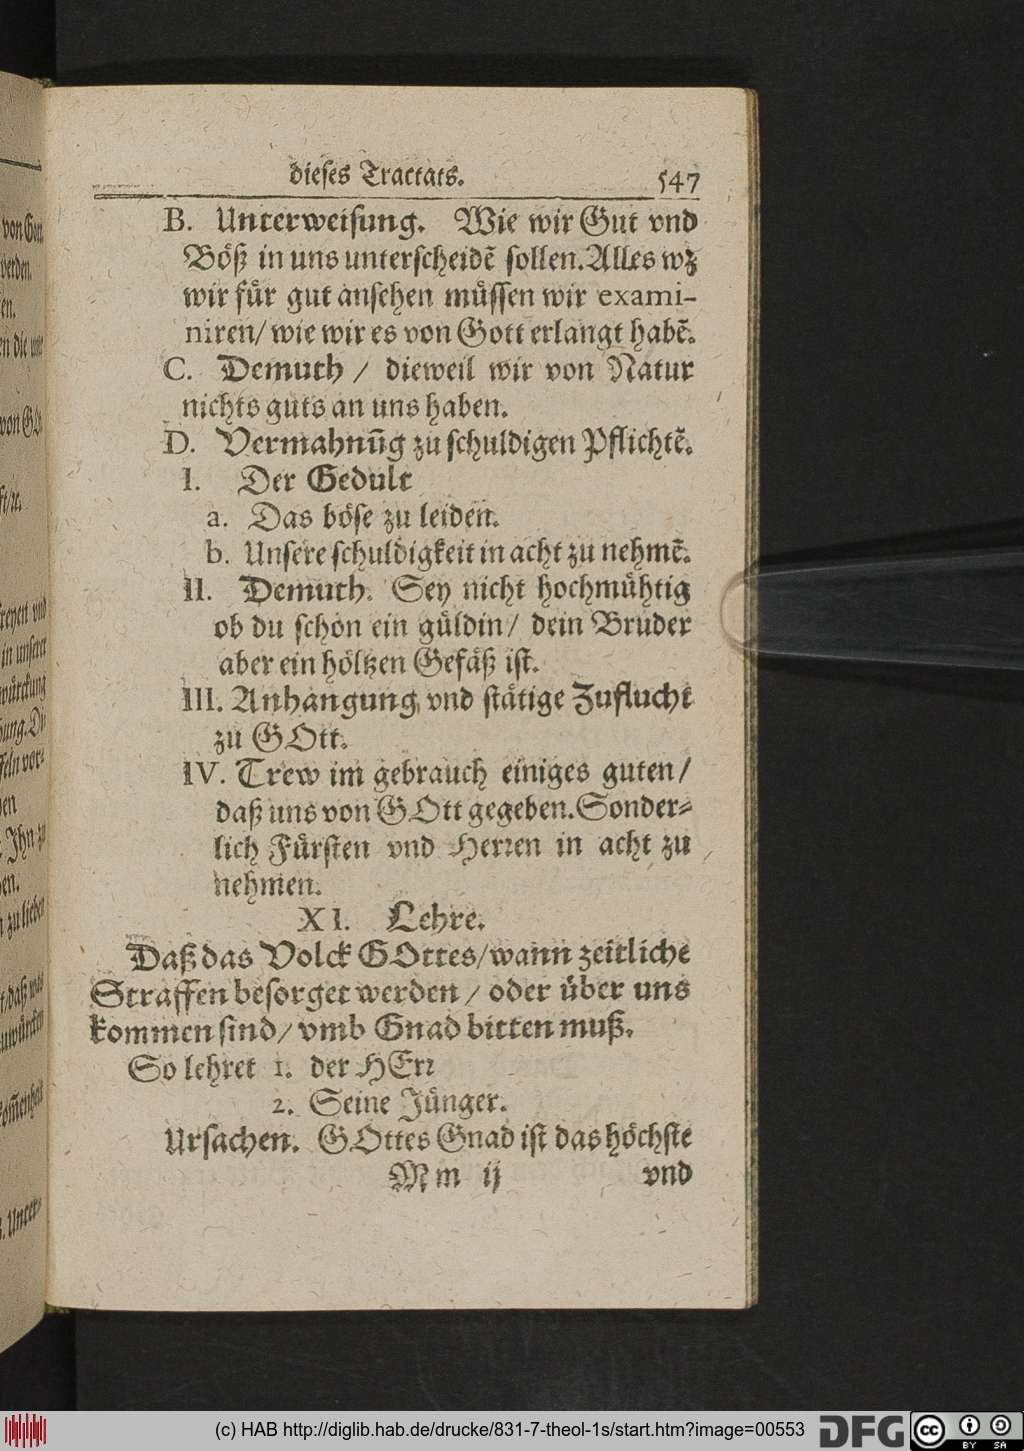 dieses Tractats. 547
B. Unterweisung. Wie wir Gut vnd
Böß in uns unterscheidē sollen. Alles wz
wir für gut ansehen müssen wir exami-
niren/ wie wir es von Gott erlangt habē.
C. Demuth / dieweil wir von Natur
nichts guts an uns haben.
D. Vermahnūg zu schuldigen Pflichtē.
I. Der Gedult
a. Das böse zu leiden.
b. Unsere schuldigkeit in acht zu nehmē.
II. Demuth. Sey nicht hochmühtig
ob du schon ein güldin/ dein Bruder
aber ein höltzen Gefäß ist.
III. Anhangung vnd stätige Zuflucht
zu GOtt.
IV. Trew im gebrauch einiges guten/
daß uns von GOtt gegeben. Sonder-
lich Fürsten vnd Herren in acht zu
nehmen.
XI. Lehre.
Daß das Volck GOttes/wann zeitliche
Straffen besorget werden / oder über uns
kommen sind/ vmb Gnad bitten muß.
So lehret 1. der HErr
2. Seine Jünger.
Ursachen. GOttes Gnad ist das höchste
M m ij vnd
(c) HAB http://diglib.hab.de/drucke/831-7-theol-1s/start.htm?image=00553 DFG cc BY SA